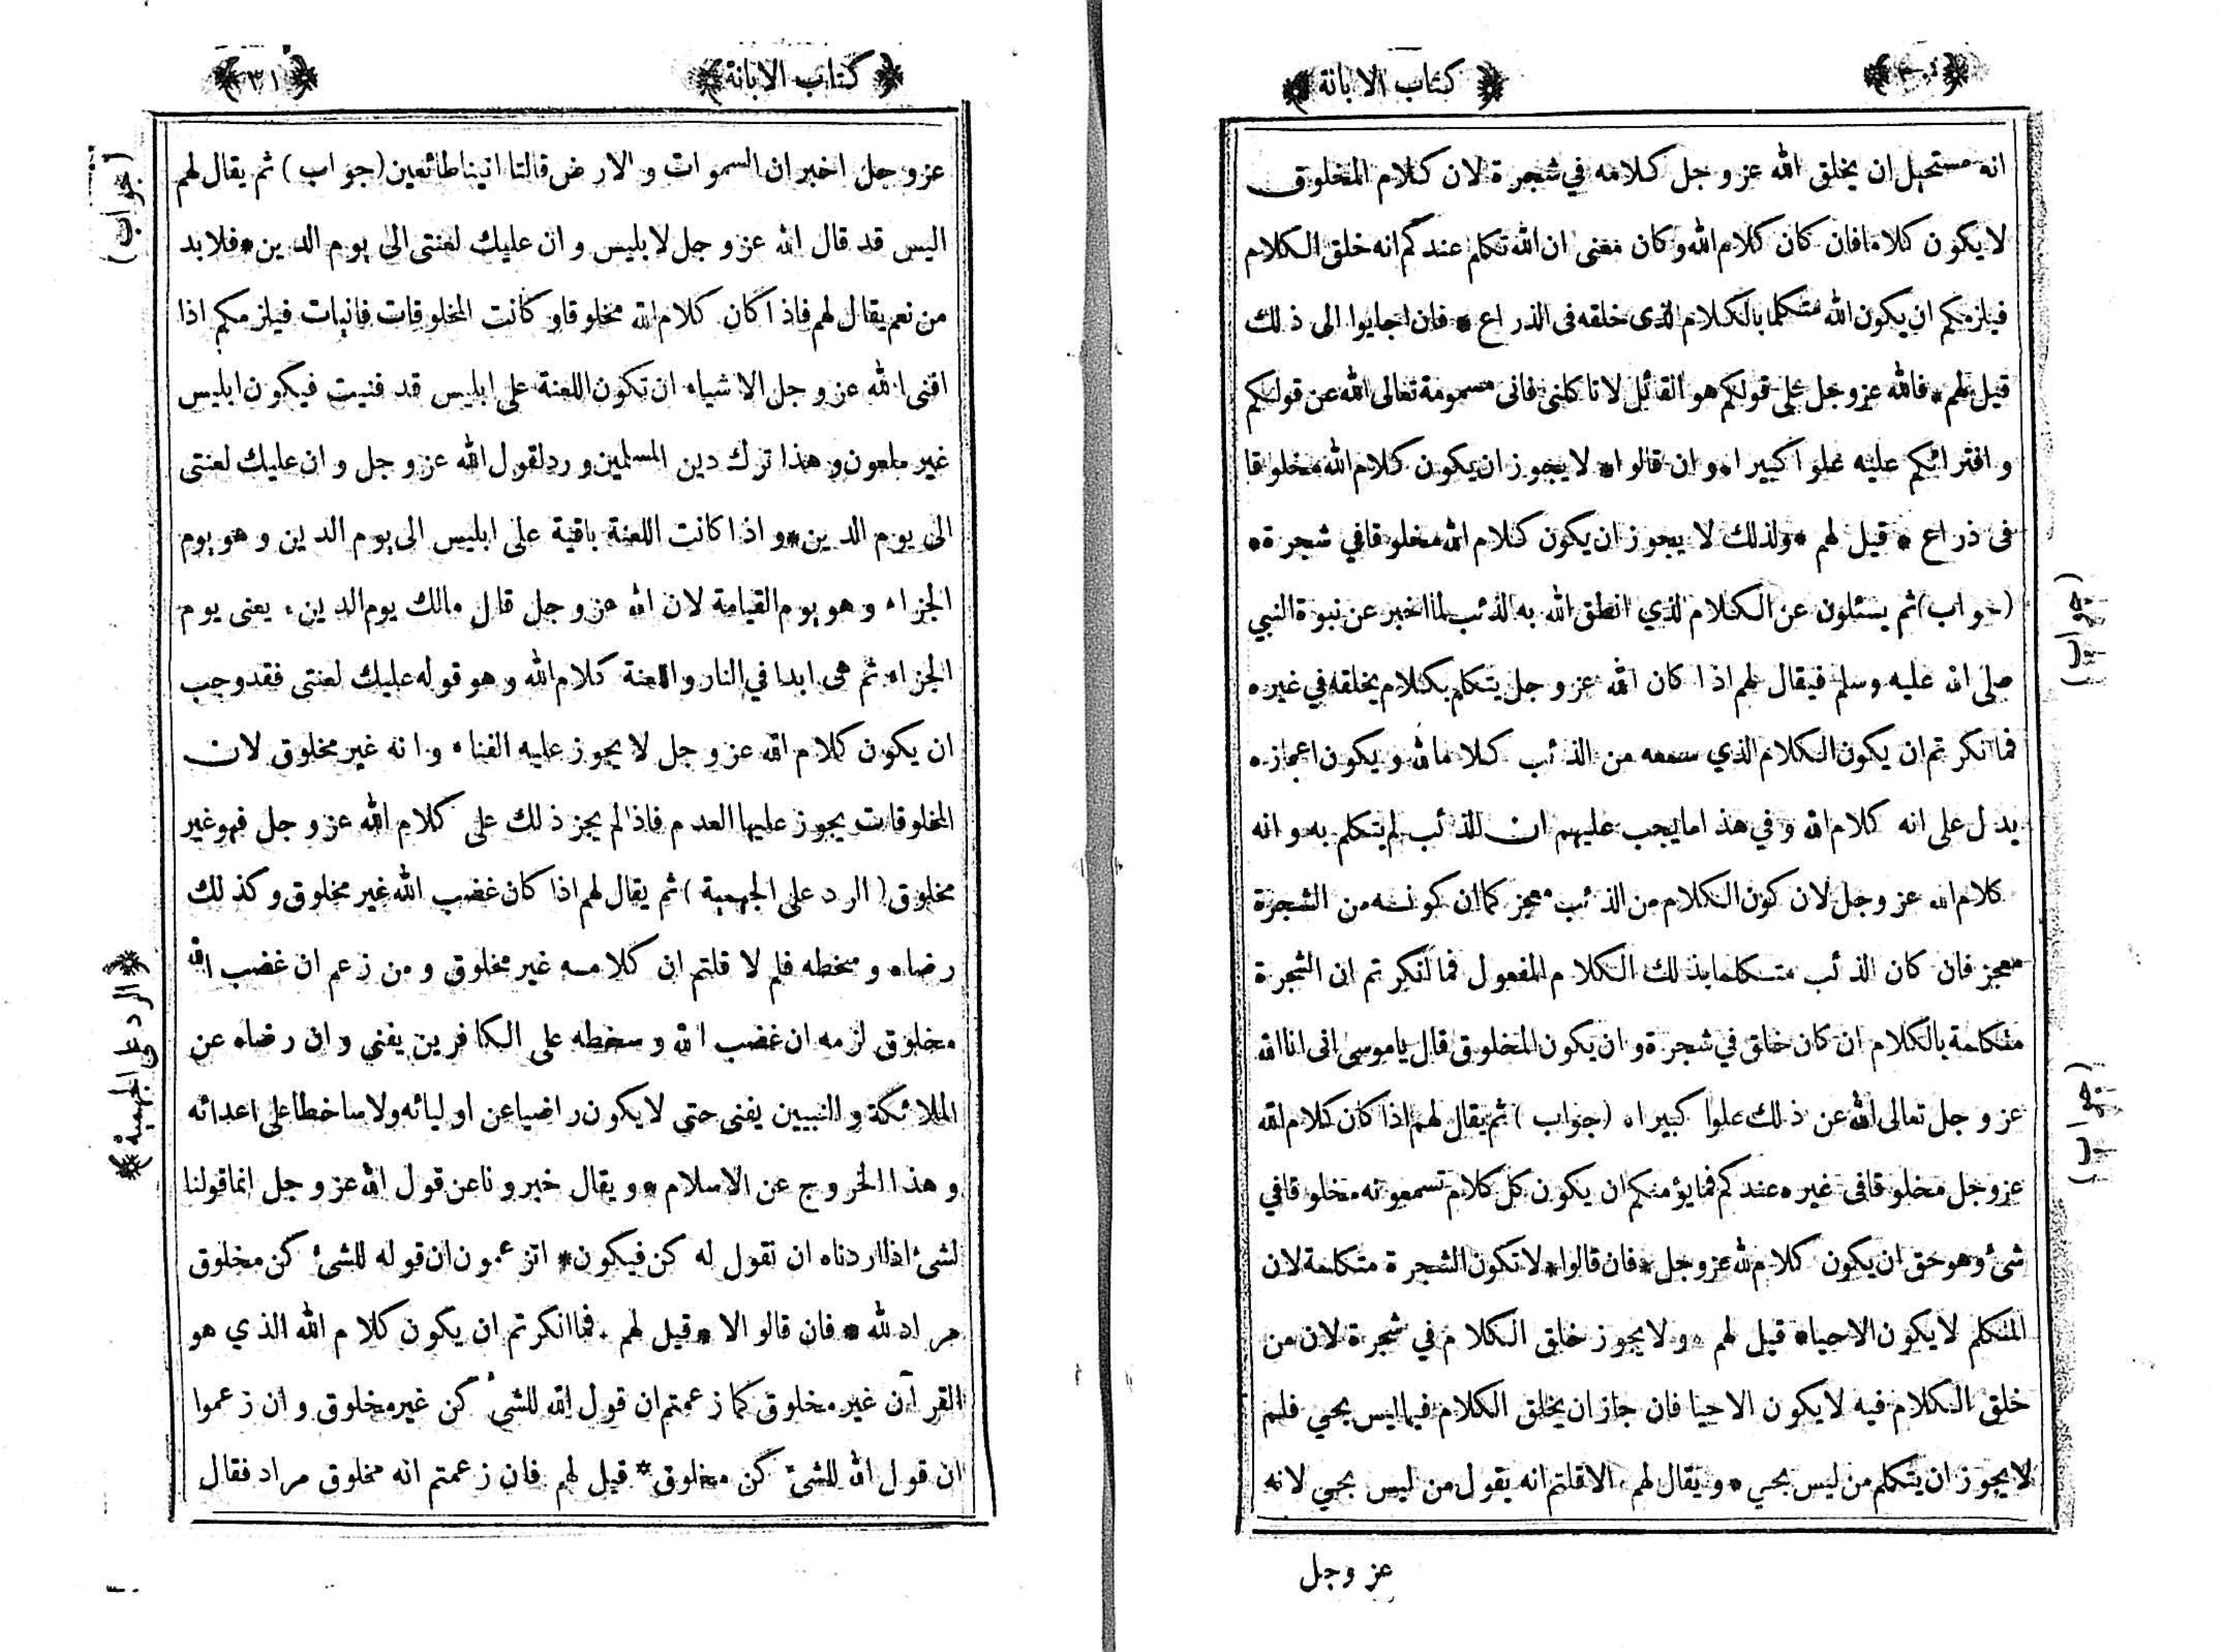 كتاب الابانة
انه مستحيل ان يخلق الله عز و جل كلامه في شجرة لان كلام المخلوق
لا يكون كلاما فان كان كلام الله و كان معنى ان الله تكلم عندكم انه خلق الكلام
فيلزمكم ان يكون الله متكلما بالكلام الذى خلقه فى الذراع * فان اجابوا الى ذلك
قيل لهم * فالله عزوجل على قولكم هو القائل لا تاكلنى فانى مسمومة تعالى الله عن قولكم
و افترائكم عليه علوا كبيرا * و ان قالوا * لا يجوز ان يكون كلام الله مخلوقا
فى ذراع * قيل لهم * ولذلك لا يجوز ان يكون كلام الله مخلوقا في شجرة *
(جواب) ثم يسئلون عن الكلام الذي انطق الله به الذئب لما اخبر عن نبوة النبي
(جواب)
صلى الله عليه وسلم فيقال لهم اذا كان الله عز و جل يتكلم بكلام يخلقه في غيره
فما انكرتم ان يكون الكلام الذي سمعه من الذئب كلاما لله و يكون اعجازه
يدل على انه كلام الله و في هذا ما يجب عليهم ان الذئب لم يتكلم به و انه
كلام الله عز وجل لان كون الكلام من الذئب معجز كما ان كونه من الشجرة
معجز فان كان الذئب متكلما بذلك الكلام المفعول فما انكرتم ان الشجرة
متكلمة بالكلام ان كان خلق في شجرة و ان يكون المخلوق قال ياموسى انى انا الله
عز و جل تعالى الله عن ذلك علوا كبيرا * (جواب) ثم يقال لهم اذا كان كلام الله
(جواب)
عزوجل مخلوقا فى غيره عندكم فما يؤمنكم ان يكون كل كلام تسمعونه مخلوقا في
شئ وهو حق ان يكون كلام لله عزوجل * فان قالوا * لا تكون الشجرة متكلمة لان
المتكلم لا يكون الاحيا * قيل لهم * ولا يجوز خلق الكلام في شجرة لان من
خلق الكلام فيه لا يكون الا حيا فان جاز ان يخلق الكلام فيما ليس بحي فلم
لا يجوز ان يتكلم من ليس بحي * و يقال لهم * الا قلتم انه يقول من ليس بحي لانه
عز وجل
كتاب الابانة
٣١
عزو جل اخبر ان السموات و الارض قالتا اتينا طائعين (جواب) ثم يقال لهم
(جواب)
اليس قد قال الله عز و جل لابليس و ان عليك لعنتى الى يوم الدين * فلابد
من نعم يقال لهم فاذا كان كلام الله مخلوقا و كانت المخلوقات فانيات فيلزمكم اذا
افنى الله عز و جل الاشياء ان تكون اللعنة على ابليس قد فنيت فيكون ابليس
غير ملعون و هذا ترك دين المسلمين و رد لقول الله عز و جل و ان عليك لعنتى
الى يوم الدين * و اذا كانت اللعنة باقية على ابليس الى يوم الدين و هو يوم
الجزاء و هو يوم القيامة لان الله عز و جل قال مالك يوم الدين * يعنى يوم
الجزاء ثم هى ابدا في النار و اللعنة كلام الله و هو قوله عليك لعنتى فقد وجب
ان يكون كلام الله عز و جل لا يجوز عليه الفناء و انه غير مخلوق لان
المخلوقات يجوز عليها العدم فاذا لم يجز ذلك على كلام الله عز و جل فهو غير
مخلوق (الرد على الجهمية) ثم يقال لهم اذا كان غضب الله غير مخلوق و كذلك
رضاه و سخطه فلم لا قلتم ان كلامه غير مخلوق و من زعم ان غضب الله
الرد على الجهمية
مخلوق لزمه ان غضب الله و سخطه على الكافرين يفني و ان رضاه عن
الملائكة و النبيين يفنى حتى لا يكون راضيا عن اوليائه ولا ساخطا على اعدائه
و هذا الخروج عن الاسلام * و يقال خبرونا عن قول الله عز و جل انما قولنا
لشئ اذا اردناه ان نقول له كن فيكون * اتزعمون ان قوله للشئ كن مخلوق
مراد لله * فان قالوا لا * قيل لهم * فما انكرتم ان يكون كلام الله الذي هو
القرآن غير مخلوق كما زعمتم ان قول الله للشئ كن غير مخلوق و ان زعموا
ان قول الله للشئ كن مخلوق * قيل لهم فان زعمتم انه مخلوق مراد فقال